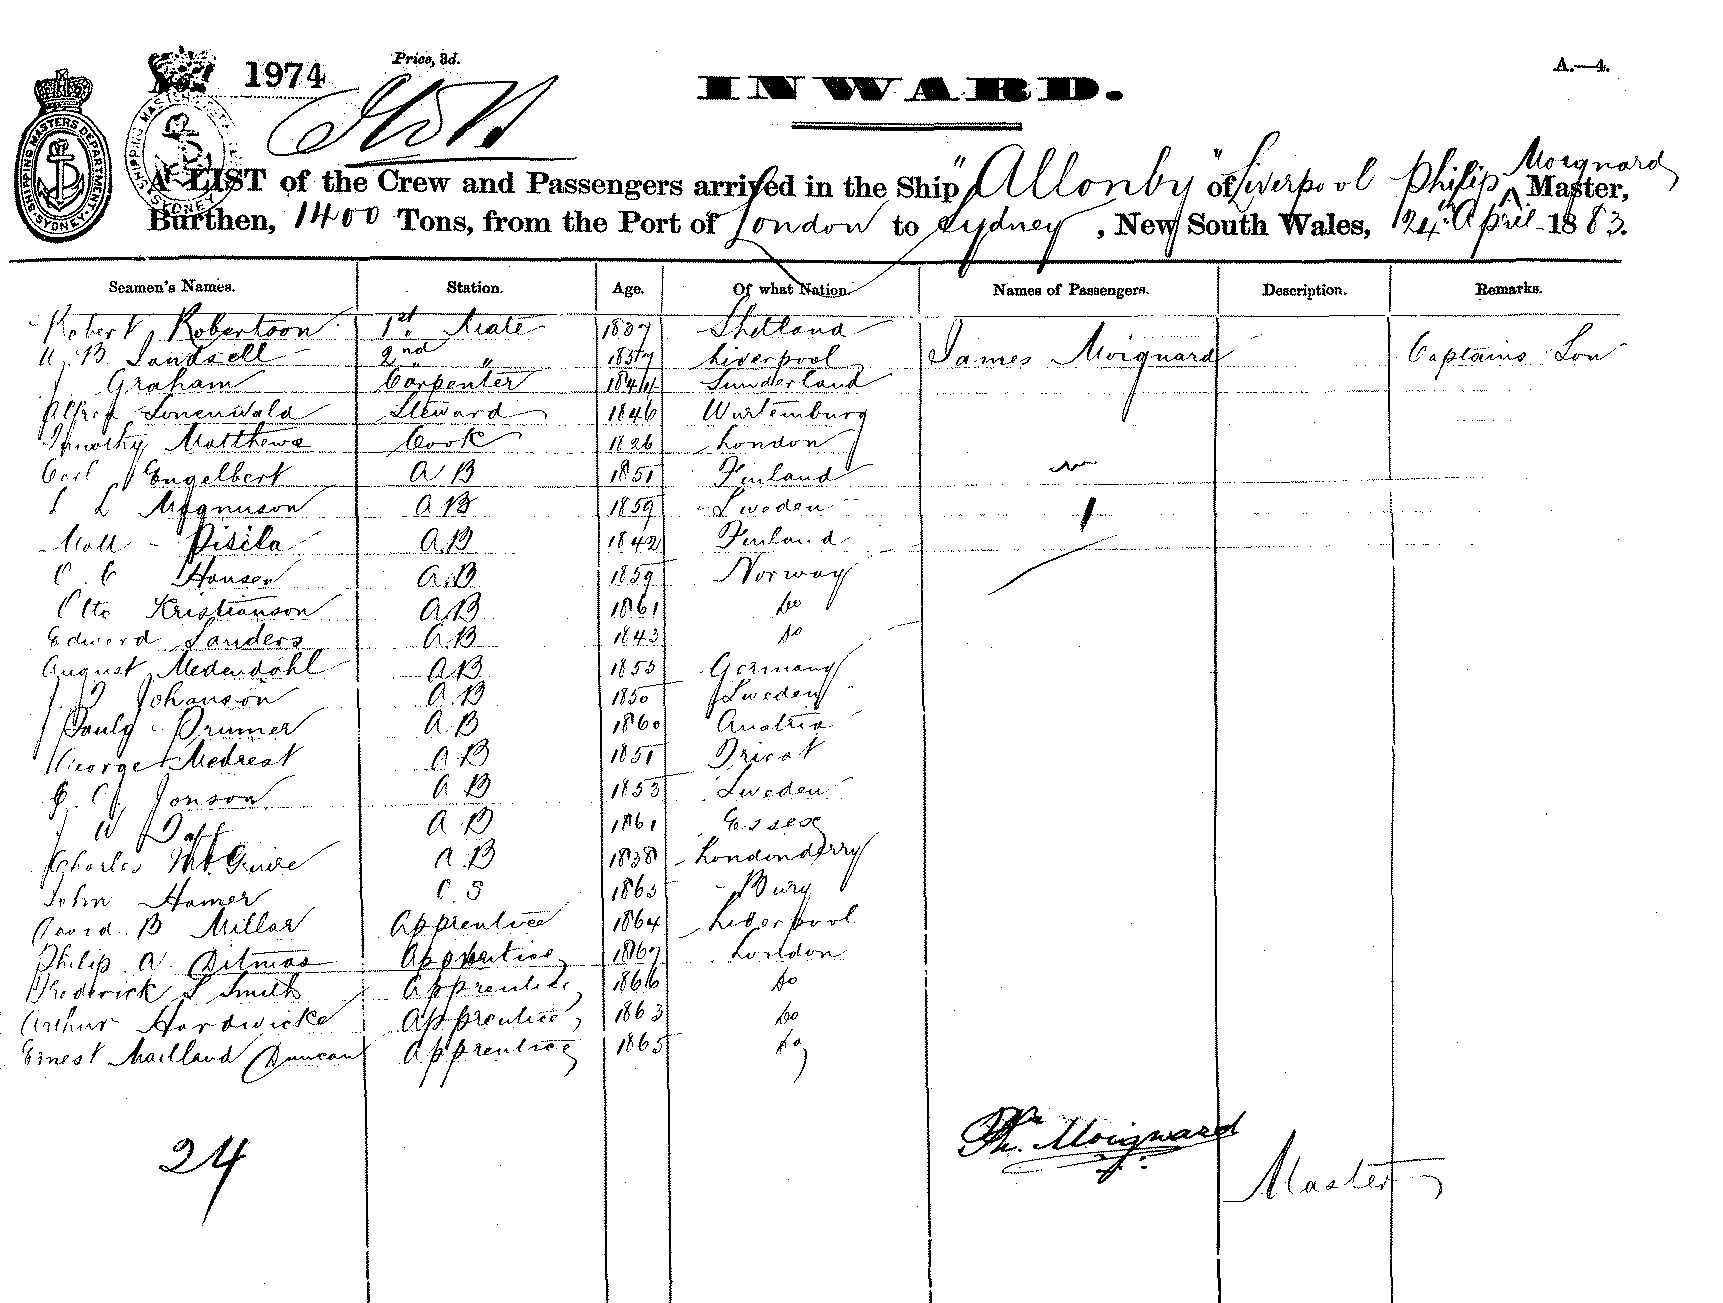 No. 1974
Price, 3d.
A.—4.
INWARD.
SHIPPING MASTERS DEPARTMENT SYDNEY
A LIST of the Crew and Passengers arrived in the Ship "Allonby" of Liverpool Philip Moignard Master,
Burthen, 1400 Tons, from the Port of London to Sydney, New South Wales, 24th April 1883.
Seamen's Names. Station. Age. Of what Nation. Names of Passengers. Description. Remarks.
Robert Robertson 1st Mate 1837 Shetland
B Sandsell 2nd " 1857 Liverpool James Moignard Captains Son
Graham Carpenter 1844 Sunderland
Alfred Steward 1846 Wurtemburg
Timothy Matthews Cook 1826 London
Carl Engelbert A B 1851 Finland
L Magnuson A B 1859 Sweden
Pisila A B 1842 Finland
Hansen A B 1859 Norway
Otto Kristianson A B 1861 Do
Edward Sanders A B 1843 Do
August Medendahl A B 1855 Germany
J Johanson A B 1850 Sweden
Prumer A B 1860 Austria
George Medrest A B 1851
Jonson A B 1853 Sweden
W A B 1861 Essex
Charles McGuire A B 1838 Londonderry
John Hamer O S 1865 Bury
David B Millar Apprentice 1864 Liverpool
Philip A Ditmas Apprentice 1867 London
Frederick S Smith Apprentice 1866 Do
Arthur Hardwicke Apprentice 1863 Do
Ernest Maitland Duncan Apprentice 1865 Do
Ph. Moignard
24
Master